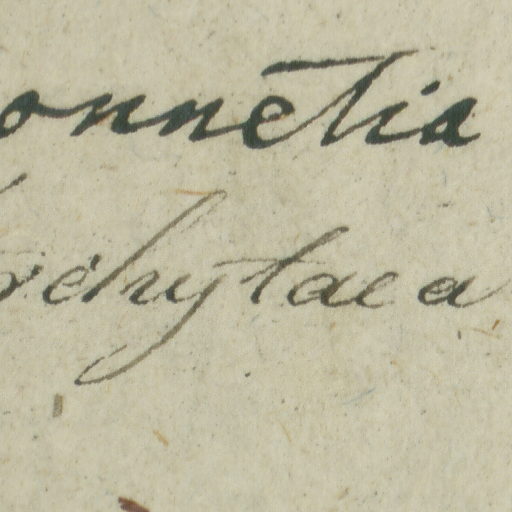 onnetia
rchytaea